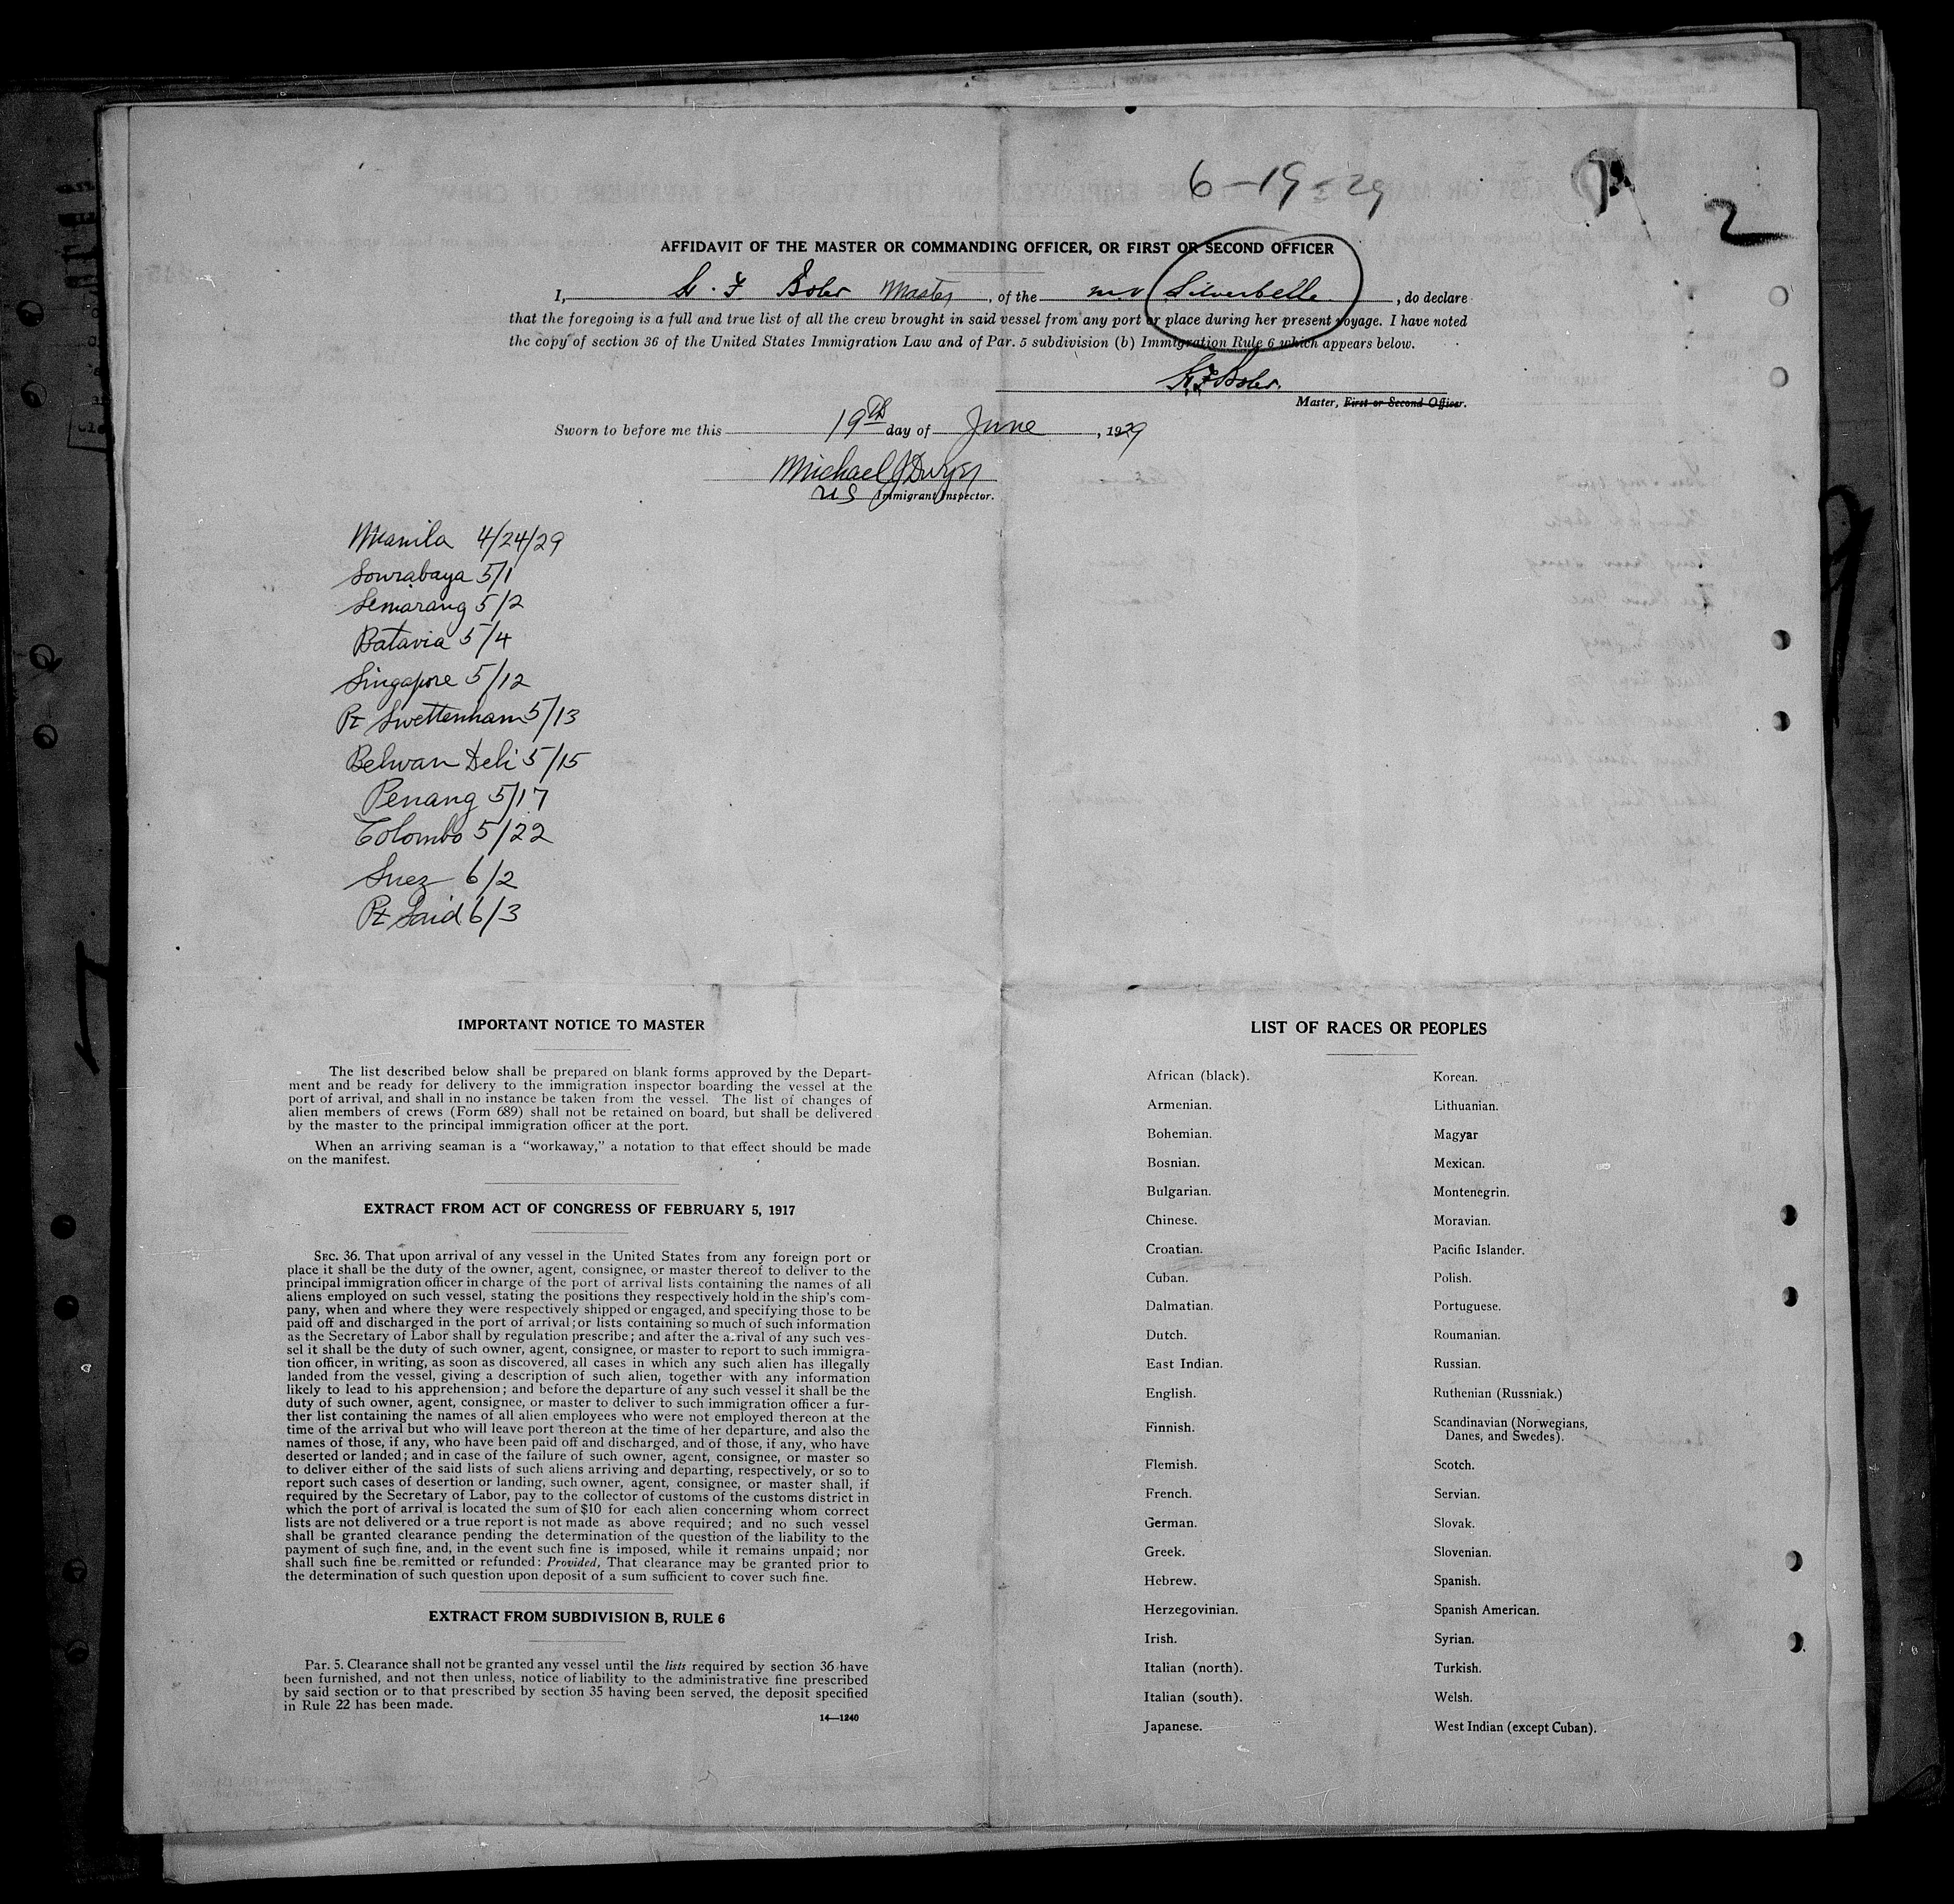 6-19-29
2
AFFIDAVIT OF THE MASTER OR COMMANDING OFFICER, OR FIRST OR SECOND OFFICER
I, Master, of the m.v Silverbelle, do declare
that the foregoing is a full and true list of all the crew brought in said vessel from any port or place during her present voyage. I have noted
the copy of section 36 of the United States Immigration Law and of Par. 5 subdivision (b) Immigration Rule 6 which appears below.
Master, First or Second Officer.
Sworn to before me this 19th day of June, 1929
Michael J Dwyer
US Immigrant Inspector.
Manila 4/24/29
Sourabaya 5/1
Semarang 5/2
Batavia 5/4
Singapore 5/12
Pt Swettenham 5/13
Belwan Deli 5/15
Penang 5/17
Colombo 5/22
Suez 6/2
Pt Said 6/3
IMPORTANT NOTICE TO MASTER
The list described below shall be prepared on blank forms approved by the Depart-
ment and be ready for delivery to the immigration inspector boarding the vessel at the
port of arrival, and shall in no instance be taken from the vessel. The list of changes of
alien members of crews (Form 689) shall not be retained on board, but shall be delivered
by the master to the principal immigration officer at the port.
When an arriving seaman is a "workaway," a notation to that effect should be made
on the manifest.
EXTRACT FROM ACT OF CONGRESS OF FEBRUARY 5, 1917
SEC. 36. That upon arrival of any vessel in the United States from any foreign port or
place it shall be the duty of the owner, agent, consignee, or master thereof to deliver to the
principal immigration officer in charge of the port of arrival lists containing the names of all
aliens employed on such vessel, stating the positions they respectively hold in the ship's com-
pany, when and where they were respectively shipped or engaged, and specifying those to be
paid off and discharged in the port of arrival; or lists containing so much of such information
as the Secretary of Labor shall by regulation prescribe; and after the arrival of any such ves-
sel it shall be the duty of such owner, agent, consignee, or master to report to such immigra-
tion officer, in writing, as soon as discovered, all cases in which any such alien has illegally
landed from the vessel, giving a description of such alien, together with any information
likely to lead to his apprehension; and before the departure of any such vessel it shall be the
duty of such owner, agent, consignee, or master to deliver to such immigration officer a fur-
ther list containing the names of all alien employees who were not employed thereon at the
time of the arrival but who will leave port thereon at the time of her departure, and also the
names of those, if any, who have been paid off and discharged, and of those, if any, who have
deserted or landed; and in case of the failure of such owner, agent, consignee, or master so
to deliver either of the said lists of such aliens arriving and departing, respectively, or so to
report such cases of desertion or landing, such owner, agent, consignee, or master shall, if
required by the Secretary of Labor, pay to the collector of customs of the customs district in
which the port of arrival is located the sum of $10 for each alien concerning whom correct
lists are not delivered or a true report is not made as above required; and no such vessel
shall be granted clearance pending the determination of the question of the liability to the
payment of such fine, and, in the event such fine is imposed, while it remains unpaid; nor
shall such fine be remitted or refunded: Provided, That clearance may be granted prior to
the determination of such question upon deposit of a sum sufficient to cover such fine.
EXTRACT FROM SUBDIVISION B, RULE 6
Par. 5. Clearance shall not be granted any vessel until the lists required by section 36 have
been furnished, and not then unless, notice of liability to the administrative fine prescribed
by said section or to that prescribed by section 35 having been served, the deposit specified
in Rule 22 has been made.
14—1240
LIST OF RACES OR PEOPLES
African (black).
Armenian.
Bohemian.
Bosnian.
Bulgarian.
Chinese.
Croatian.
Cuban.
Dalmatian.
Dutch.
East Indian.
English.
Finnish.
Flemish.
French.
German.
Greek.
Hebrew.
Herzegovinian.
Irish.
Italian (north).
Italian (south).
Japanese.
Korean.
Lithuanian.
Magyar
Mexican.
Montenegrin.
Moravian.
Pacific Islander.
Polish.
Portuguese.
Roumanian.
Russian.
Ruthenian (Russniak.)
Scandinavian (Norwegians,
Danes, and Swedes).
Scotch.
Servian.
Slovak.
Slovenian.
Spanish.
Spanish American.
Syrian.
Turkish.
Welsh.
West Indian (except Cuban).